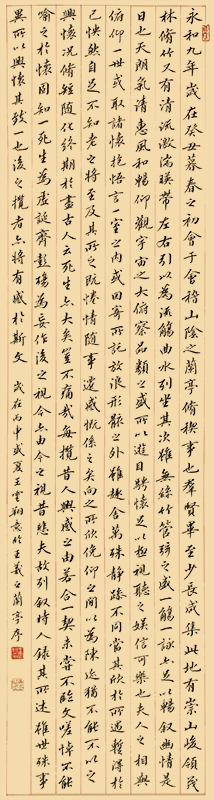 永和九年歲在癸丑暮春之初會于會稽山陰之蘭亭脩稧事也羣賢畢至少長咸集此地有崇山峻領茂
林脩竹又有清流激湍暎帶左右引以為流觴曲水列坐其次雖無絲竹管弦之盛一觴一詠亦足以暢叙幽情是
日也天朗氣清惠風和暢仰觀宇宙之大俯察品類之盛所以遊目騁懷足以極視聽之娛信可樂也夫人之相與
俯仰一世或取諸懷抱悟言一室之內或因寄所託放浪形骸之外雖趣舍萬殊靜躁不同當其欣於所遇暫得於
己怏然自足不知老之將至及其所之既惓情隨事遷感慨係之矣向之所欣俛仰之間以為陳迹猶不能不以之
興懷況脩短隨化終期於盡古人云死生亦大矣豈不痛哉每攬昔人興感之由若合一契未嘗不臨文嗟悼不能
喻之於懷固知一死生為虛誕齊彭殤為妄作後之視今亦由今之視昔悲夫故列叙時人錄其所述雖世殊事
異所以興懷其致一也後之攬者亦將有感於斯文 歲在丙申盛夏王雲翔於王羲之蘭亭序